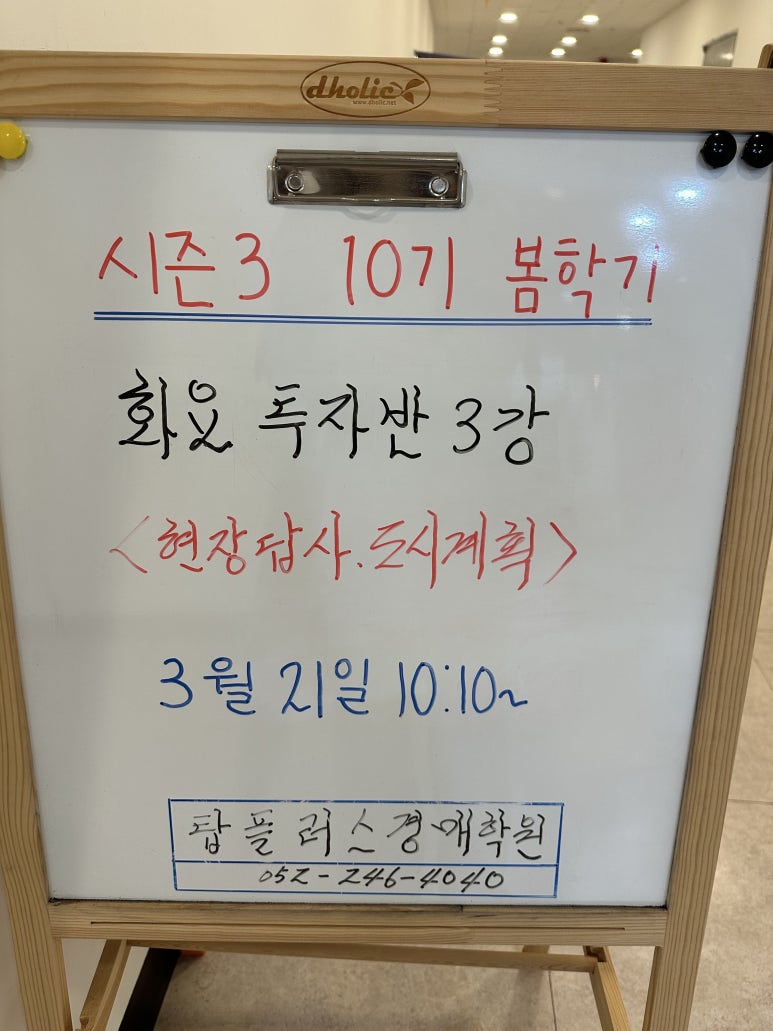 dholic
www.dholic.net
시즌3 10기 봄학기
화요 투자반 3강
<현장답사.도시계획>
3월 21일 10:10~
탑플러스경매학원
052-246-4040